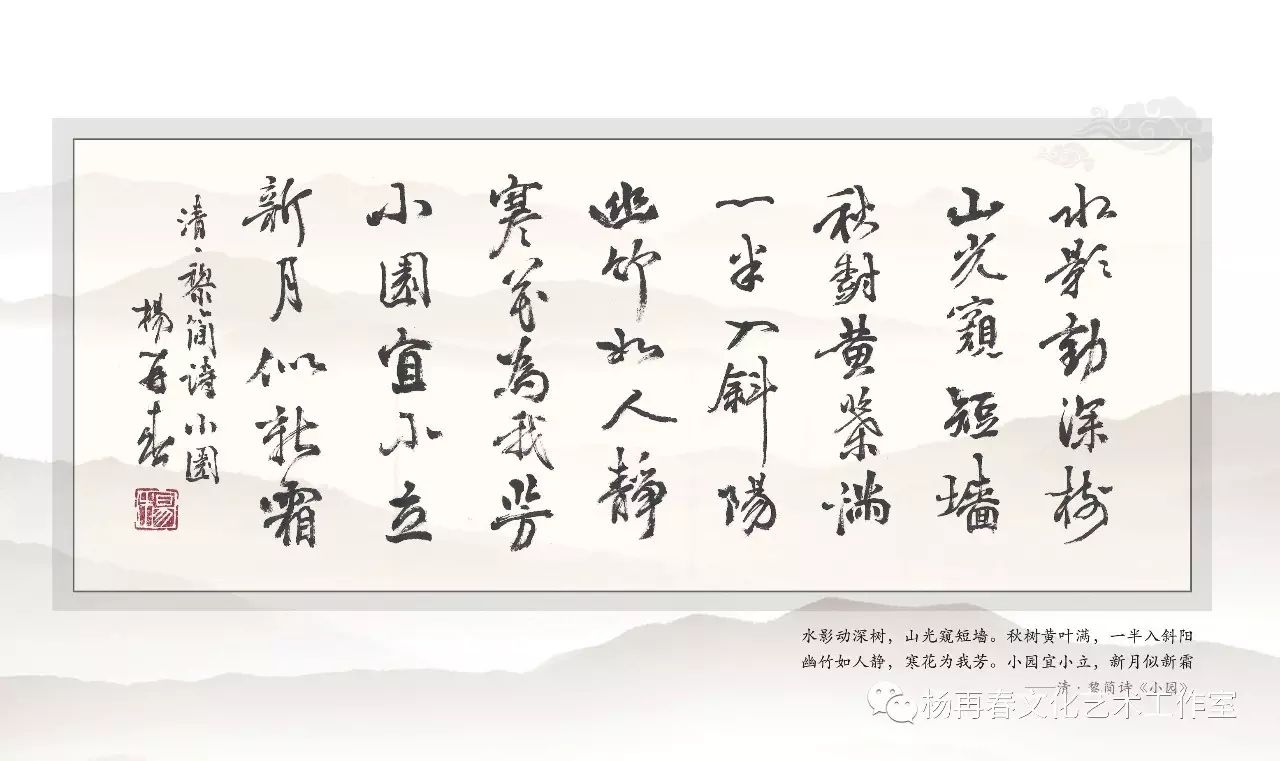 水影動深樹
山光窺短墻
秋對黄葉滿
一半入斜陽
幽竹如人靜
寒花為我芳
小園宜小立
新月似新霜
清·黎簡诗小園
楊再春
楊
水影动深树，山光窥短墙。秋树黄叶满，一半入斜阳
幽竹如人静，寒花为我芳。小园宜小立，新月似新霜
——清·黎简诗《小园》
杨再春文化艺术工作室